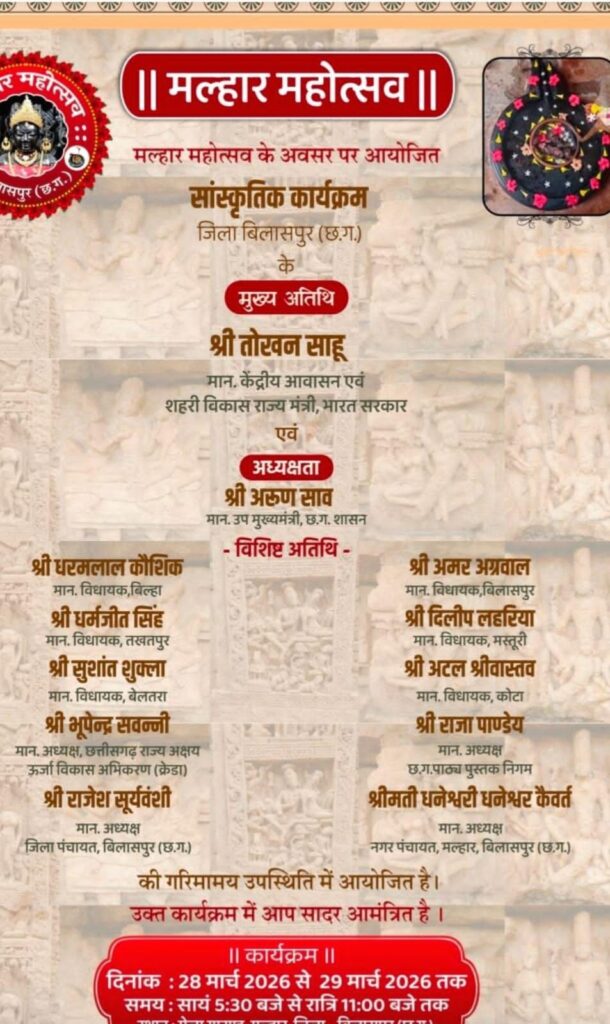 र महोत्सव
ासपुर (छ.ग.)
|| मल्हार महोत्सव ||
मल्हार महोत्सव के अवसर पर आयोजित
सांस्कृतिक कार्यक्रम
जिला बिलासपुर (छ.ग.)
के
मुख्य अतिथि
श्री तोखन साहू
मान. केंद्रीय आवासन एवं
शहरी विकास राज्य मंत्री, भारत सरकार
एवं
अध्यक्षता
श्री अरूण साव
मान. उप मुख्यमंत्री, छ.ग. शासन
- विशिष्ट अतिथि -
श्री धरमलाल कौशिक
मान. विधायक,बिल्हा
श्री धर्मजीत सिंह
मान. विधायक, तखतपुर
श्री सुशांत शुक्ला
मान. विधायक, बेलतरा
श्री भूपेन्द्र सवन्नी
मान. अध्यक्ष, छत्तीसगढ़ राज्य अक्षय
ऊर्जा विकास अभिकरण (क्रेडा)
श्री राजेश सूर्यवंशी
मान. अध्यक्ष
जिला पंचायत, बिलासपुर (छ.ग.)
श्री अमर अग्रवाल
मान. विधायक,बिलासपुर
श्री दिलीप लहरिया
मान. विधायक, मस्तूरी
श्री अटल श्रीवास्तव
मान. विधायक, कोटा
श्री राजा पाण्डेय
मान. अध्यक्ष
छ.ग.पाठ्य पुस्तक निगम
श्रीमती धनेश्वरी धनेश्वर कैवर्त
मान. अध्यक्ष
नगर पंचायत, मल्हार, बिलासपुर (छ.ग.)
की गरिमामय उपस्थिति में आयोजित है।
उक्त कार्यक्रम में आप सादर आमंत्रित है ।
|| कार्यक्रम ||
दिनांक : 28 मार्च 2026 से 29 मार्च 2026 तक
समय : सायं 5:30 बजे से रात्रि 11:00 बजे तक